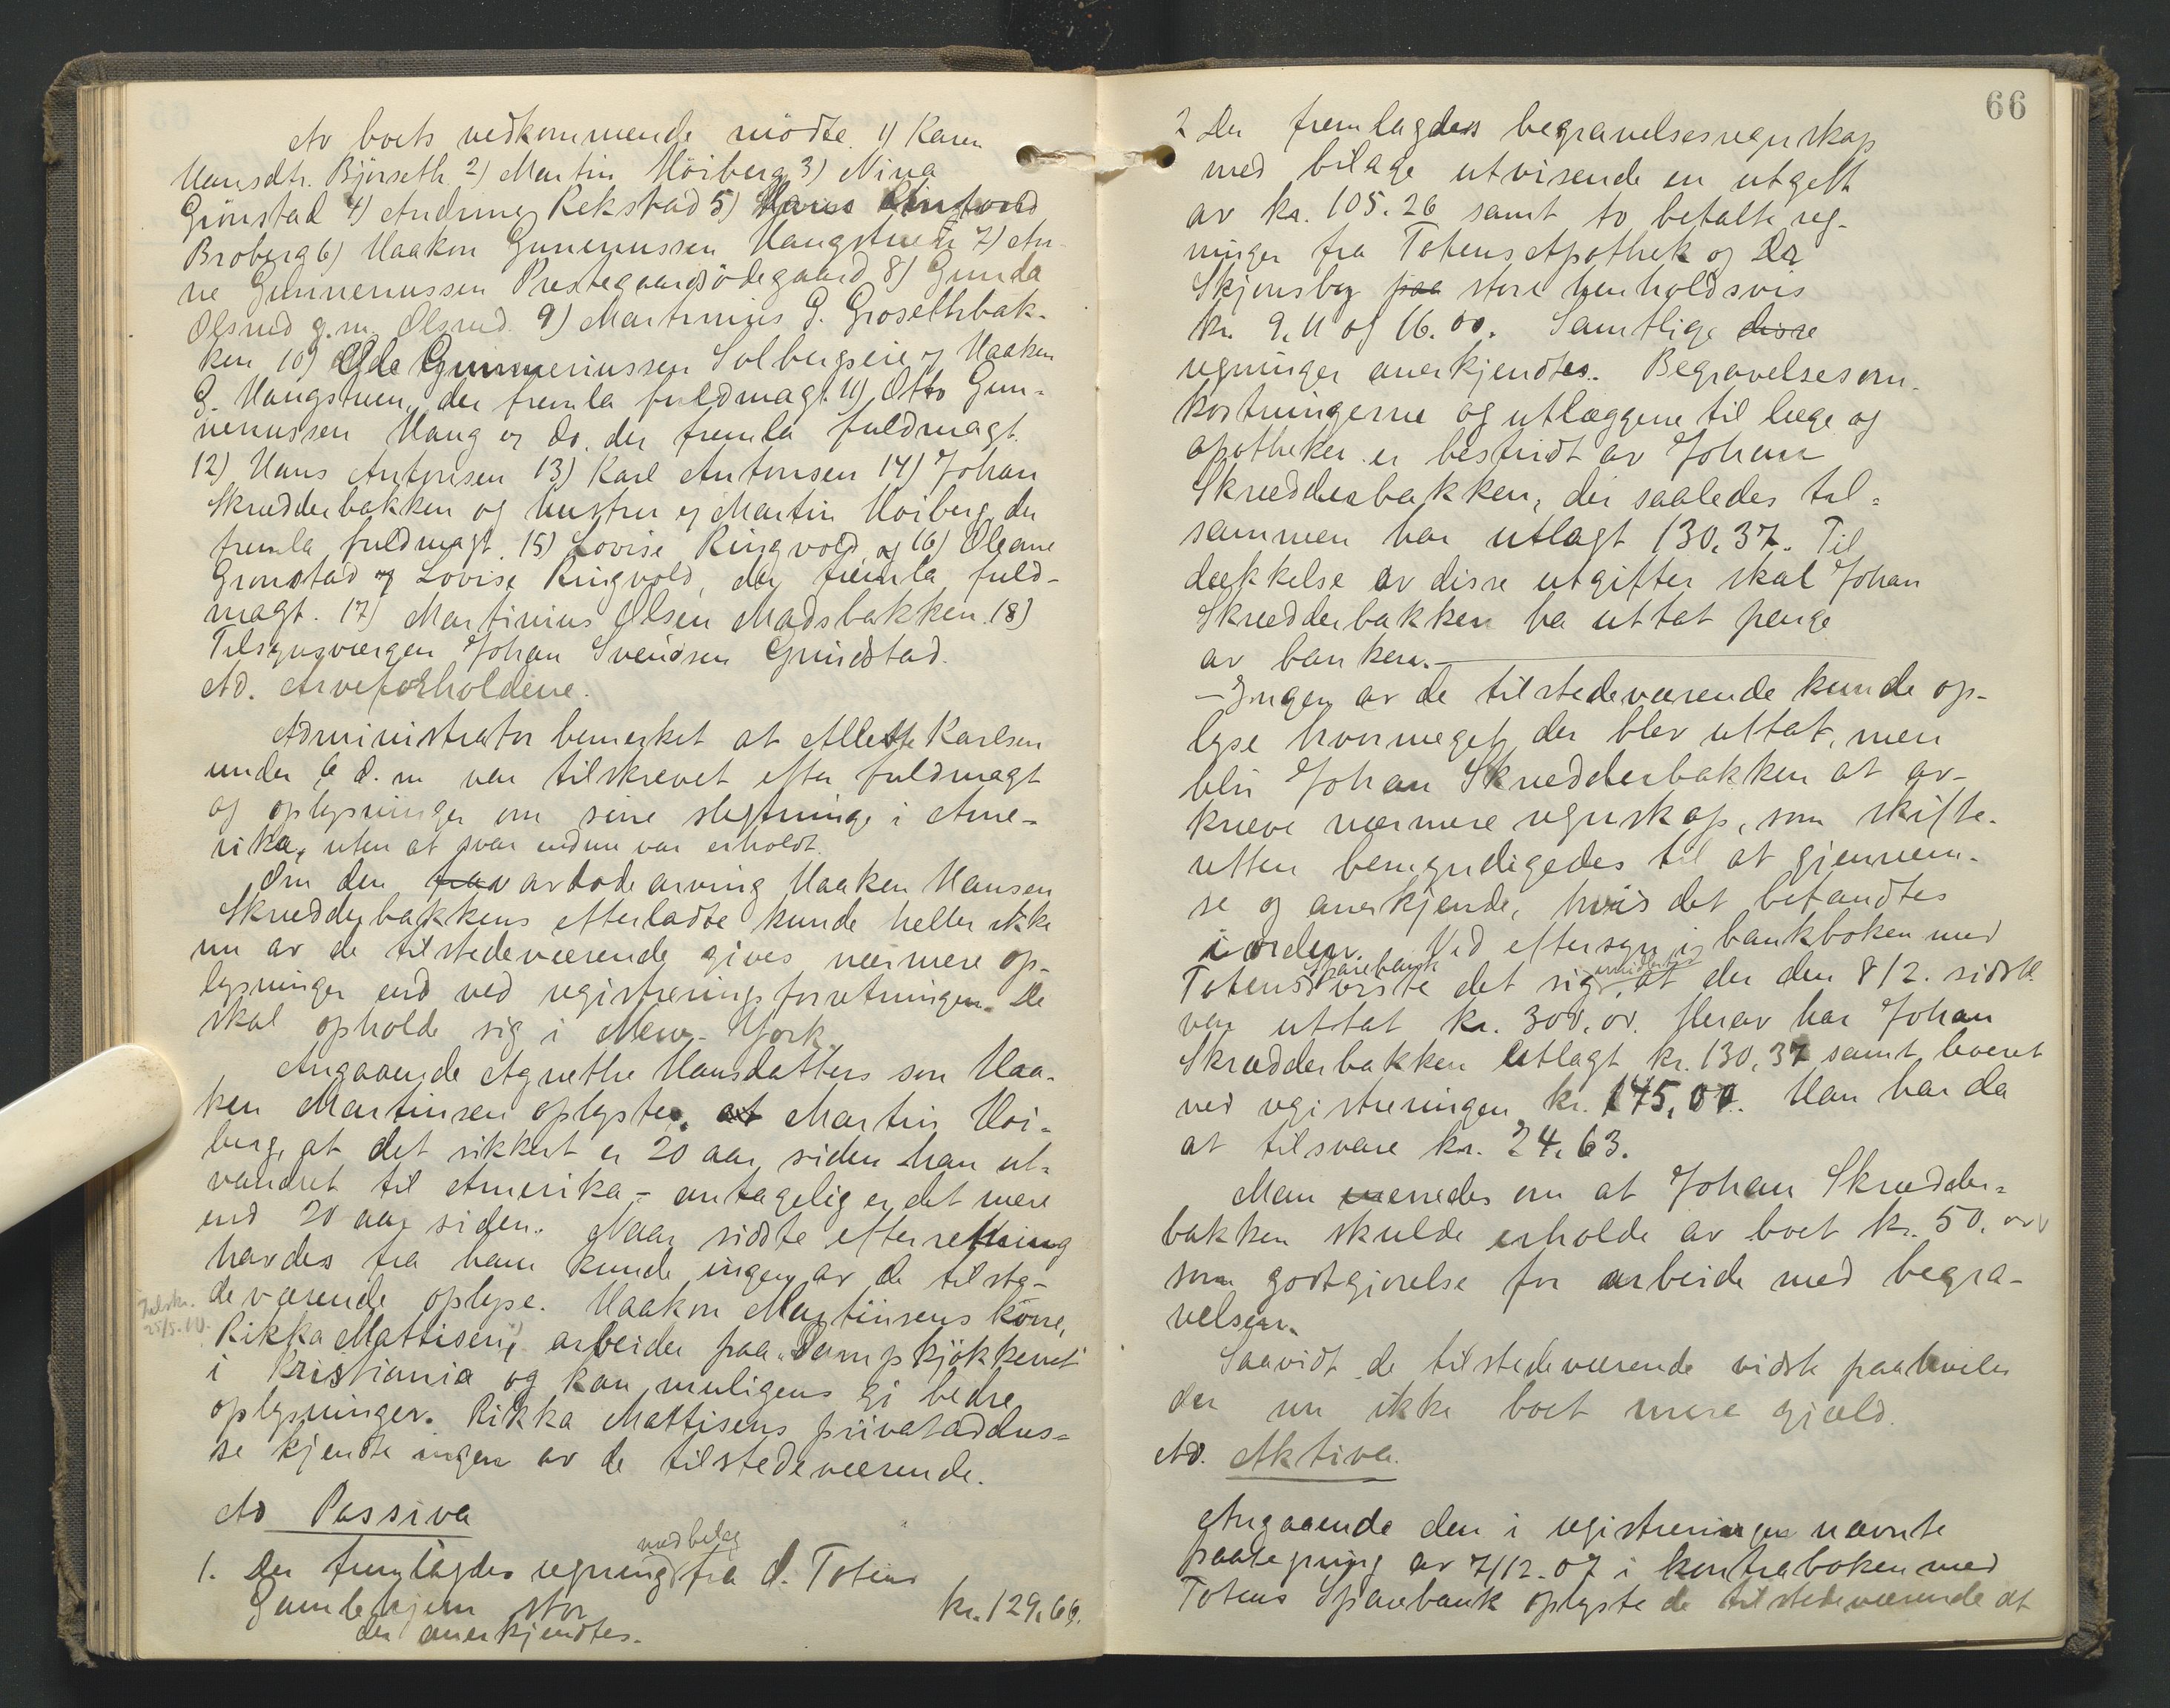 Av boets vedkommende mödte. 1) Karen
Hansdtr. Björseth 2) Martin Höiberg 3) Nina
Grönstad 4) Andrine Rekstad 5)
Broberg 6) Haakon Gunerussen Haugstuen 7) An-
ne Gunnerussen Prestegaardsödegaard 8) Gunda
Olsrud g.m. Olsrud. 9) Martinius G. Grosethbak-
ken 10) Gunneriussen Solbergseie og Haaken
G. Haugstuen, der fremla fuldmagt 11) Otto Gun-
nerussen Haug og do. der fremla fuldmagt.
12) Hans Antonsen 13) Karl Antonsen 14) Johan
Skrædderbakken og hustru og Martin Hoiberg, der
fremla fuldmagt. 15) Lovise Ringvold og 16) Oleane
Gronstad og Lovise Ringvold, der fremla fuld-
magt. 17) Martinius Olsen Madsbakken. 18)
Tilsynsværgen Johan Svendsen Grindstad.
Ad. Arveforholdene.
Administrator bemerket at Allette Karlsen
under 6 d. m var tilskrevet efter fuldmagt
og oplysninger om sine slegtninge i Ame-
rika, uten at svar endnu var erholdt.
Om den avdode arving Haaken Hansen
Skrædderbakkens efterladte kunde heller ikke
nu av de tilstedeværende gives nærmere op-
lysninger end ved registreringsforretningen. De
skal opholde sig i New-York.
Angaaende Agnethe Hansdatters son Haa-
ken Martinsen oplyste at Martin Hoi-
berg, at det sikkert er 20 aar siden han ut-
vandret til Amerika - antagelig er det mere
end 20 aar siden. Naar sidste efterretning
havdes fra ham kunde ingen av de tilste-
deværende oplyse. Haakon Martinsens köne,
Tilskr.
25/5.10.
Rikka Mattisen, arbeider paa "Dampkjökkenet"
i Kristiania og kan muligens gi bedre
oplysninger. Rikka Mattisens privataddres-
se kjendte ingen av de tilstedeværende.
Ad Passiva
med bilag
1. Der fremlagdes regning fra Ö. Totens
Gamlehjem stor kr. 129,66.
der anerkjendtes.
66
2 Der fremlagdes begravelsesregnskap
med bilage utvisende en utgift
av kr. 105.26 samt to betalte reg-
ninger fra Totens Apothek og Dr
Skjonsby paa store henholdsvis
kr. 9.11 og 16.00. Samtlige disse
regninger anerkjendtes. Begravelsesom-
kostningerne og utlæggene til læge og
apotheker er bestridt av Johan
Skrædderbakken, der saaledes til-
sammen har utlagt 130,37. Til
dækkelse av disse utgifter skal Johan
Skrædderbakken ha uttat penge
av banken.
- Ingen av de tilstedeværende kunde op-
lyse hvormeget der blev uttat, men
blir Johan Skrædderbakken at av-
kræve nærmere regnskap, som skifte-
retten bemyndigedes til at gjennem-
se og anerkjende, hvis det befandtes
i orden. Ved eftersyn i bankboken med
Sparebank imidlertid
Totens viste det sig, at der den 8/2. sidstl.
var uttat kr. 300,00. Herav har Johan
Skrædderbakken utlagt kr. 130,37 samt leveret
ved registreringen kr. 145,00. Han har da
at tilsvare kr. 24.63.
Man enedes om at Johan Skrædder-
bakken skulde erholde av boet kr. 50,00
som godtgjorelse for arbeide med begra-
velsen.
Saavidt de tilstedeværende vidste paahviler
der nu ikke boet mere gjæld.
Ad. Aktiva.
Angaaende den i registreringen nævnte
paategning av 7/12.07 i kontraboken med
Totens Sparebank oplyste de tilstedeværende at